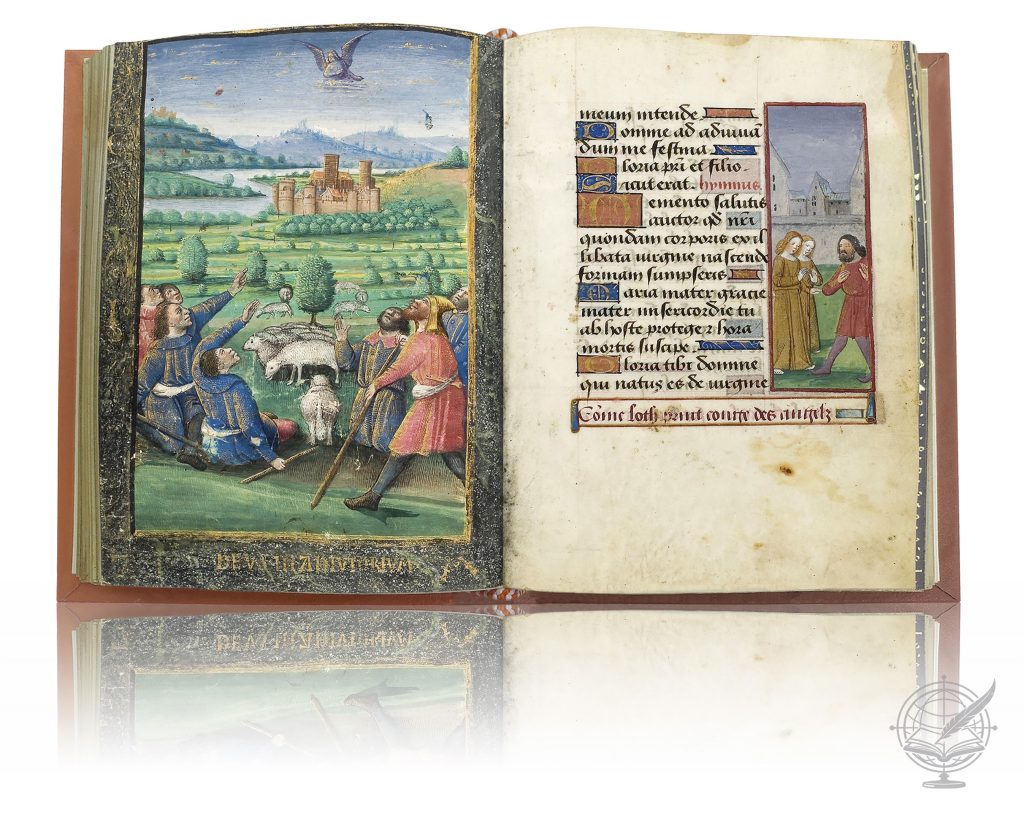 DEVS IN ADIVTORIVM
meum intende
Domine ad adiuuā
dum me festina
Gloria pr̄i et filio
Sicut erat. hymnus.
Memento salutis
auctor qđ nr̄i
quondam corporis ex il
libata virgine nascendo
formam sumpseris
Maria mater gracie
mater misericordie tu
ab hoste protege ⁊ hora
mortis suscipe.
Gloria tibi domine
qui natus es de virgine
Cōme loth vint contre des angelz